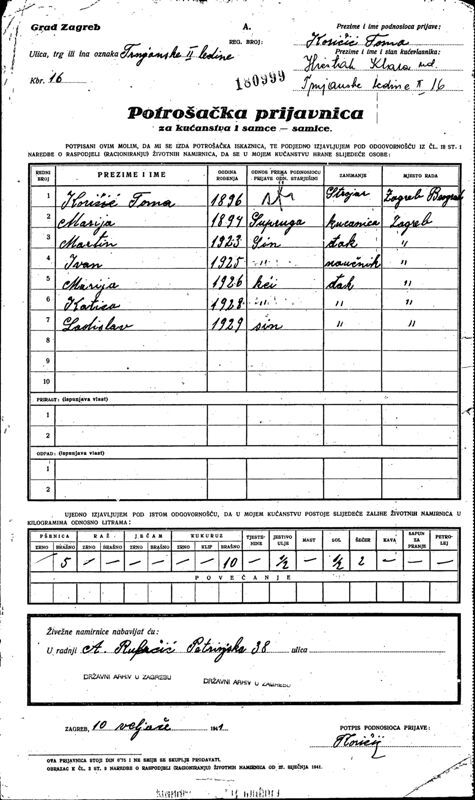 Grad Zagreb
A.
REG. BROJ:
180999
Prezime i ime podnosioca prijave:
Koričić Toma
Ulica, trg ili ina oznaka Trnjanske II ledine
Prezime i ime i stan kućevlasnika:
Klara ud.
Kbr. 16
Trnjanske ledine II 16
Potrošačka prijavnica
za kućanstva i samce — samice.
POTPISANI OVIM MOLIM, DA MI SE IZDA POTROŠAČKA ISKAZNICA, TE PODJEDNO IZJAVLJUJEM POD ODGOVORNOŠĆU IZ ČL. 18 ST. 1
NAREDBE O RASPODJELI (RACIONIRANJU) ŽIVOTNIH NAMIRNICA, DA SE U MOJEM KUĆANSTVU HRANE SLIJEDEĆE OSOBE:
REDNI BROJ PREZIME I IME GODINA ROĐENJA ODNOS PREMA PODNOSIOCU PRIJAVE ODN. STARJEŠINI ZANIMANJE MJESTO RADA
1 Koričić Toma 1896 Strojar Zagreb
2 Marija 1894 Supruga kućanica Zagreb
3 Martin 1923 Sin đak "
4 Ivan 1925 " naučnik "
5 Marija 1926 kći đak "
6 Katica 1928 " " "
7 Ladislav 1929 sin " "
8
9
10
PRIRAST: (ispunjava vlast)
1
2
OTPAD: (ispunjava vlast)
1
2
UJEDNO IZJAVLJUJEM POD ISTOM ODGOVORNOŠĆU, DA U MOJEM KUĆANSTVU POSTOJE SLIJEDEĆE ZALIHE ŽIVOTNIH NAMIRNICA U
KILOGRAMIMA ODNOSNO LITRAMA:
PŠENICA RAŽ JEČAM KUKURUZ TJESTENINE JESTIVO ULJE MAST SOL ŠEĆER KAVA SAPUN ZA PRANJE PETROLEJ
ZRNO BRAŠNO ZRNO BRAŠNO ZRNO BRAŠNO ZRNO KLIP BRAŠNO
— 5 — — — — — — 10 — 1/2 — 1/2 2 — — —
POVEĆANJE
Živežne namirnice nabavljat ću:
U radnji A. Petrinjska 38 ulica
DRŽAVNI ARHIV U ZAGREBU
DRŽAVNI ARHIV U ZAGREBU
ZAGREB, 10 veljače 1941
POTPIS PODNOSIOCA PRIJAVE:
Koričić
OVA PRIJAVNICA STOJI DIN 0'75 I NE SMIJE SE SKUPLJE PRODAVATI.
OBRAZAC K ČL. 3 ST. 2 NAREDBE O RASPODJELI (RACIONIRANJU) ŽIVOTNIH NAMIRNICA OD 27. SIJEČNJA 1941.